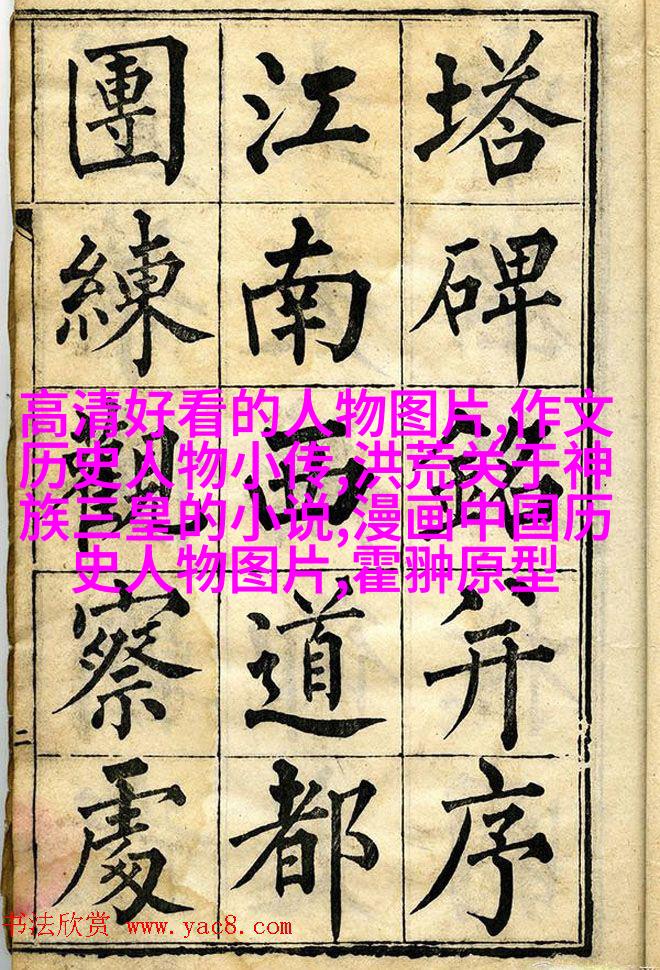 塔碑銘并序
江南西道都
團練觀察處
二
高清好看的人物图片,作文
历史人物小传,洪荒关于神
族三皇的小说,漫画中国历
史人物图片,霍翀原型
书法欣赏 www.yac8.com